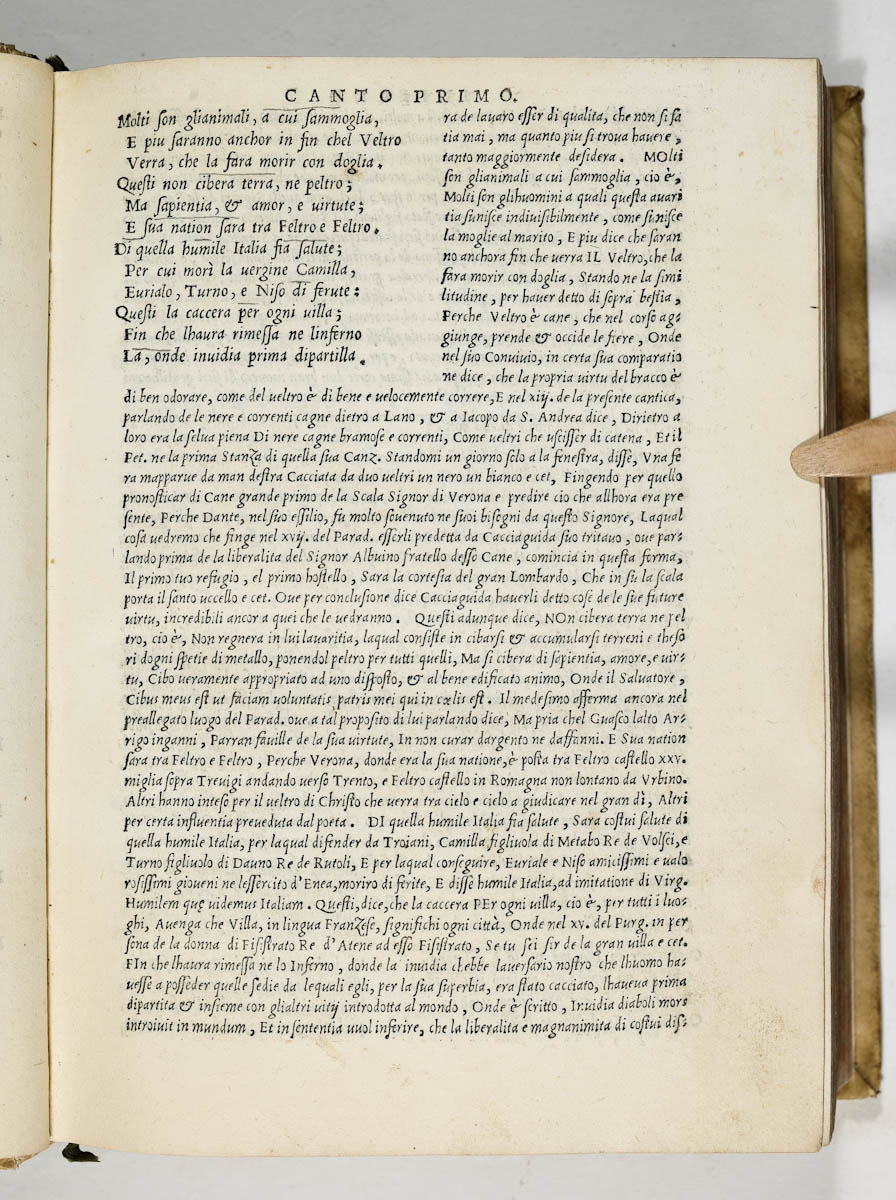 CANTO PRIMO.
Molti son glianimali, a cui sammoglia,
E piu saranno anchor in fin chel Veltro
Verra, che la fara morir con doglia.
Questi non cibera terra, ne peltro;
Ma sapientia, & amor, e uirtute;
E sua nation sara tra Feltro e Feltro.
Di quella humile Italia fia salute;
Per cui morì la uergine Camilla,
Eurialo, Turno, e Niso di ferute:
Questi la caccera per ogni uilla;
Fin che lhaura rimessa ne linferno
La, onde inuidia prima dipartilla.
ra de lauaro esser di qualita, che non si sa
tia mai, ma quanto piu si troua hauere,
tanto maggiormente desidera. MOlti
son glianimali a cui sammoglia, cio è,
Molti son glihuomini a quali questa auari
tia sunisce indiuisibilmente, come sunisce
la moglie al marito, E piu dice che saran
no anchora fin che uerra IL Veltro, che la
fara morir con doglia, Stando ne la simi
litudine, per hauer detto di sopra bestia,
Perche Veltro è cane, che nel corso ag-
giunge, prende & occide le fiere, Onde
nel suo Conuiuio, in certa sua comparatio
ne dice, che la propria uirtu del bracco è
di ben odorare, come del ueltro è di bene e uelocemente correre, E nel xiij. de la presente cantica,
parlando de le nere e correnti cagne dietro a Lano, & a Iacopo da S. Andrea dice, Dirietro a
loro era la selua piena Di nere cagne bramose e correnti, Come ueltri che uscisser di catena, Et il
Pet. ne la prima Stanza di quella sua Canz. Standomi un giorno solo a la fenestra, disse, Vna fe
ra mapparue da man destra Cacciata da duo ueltri un nero un bianco e cet, Fingendo per quello
pronosticar di Cane grande primo de la Scala Signor di Verona e predire cio che allhora era pre
sente, Perche Dante, nel suo essilio, fu molto souenuto ne suoi bisogni da questo Signore, Laqual
cosa uedremo che finge nel xvij. del Parad. esserli predetta da Cacciaguida suo tritauo, oue par-
lando prima de la liberalita del Signor Albuino fratello desso Cane, comincia in questa forma,
Il primo tuo refugio, el primo hostello, Sara la cortesia del gran Lombardo, Che in su la scala
porta il santo uccello e cet. Oue per conclusione dice Cacciaguida hauerli detto cose de le sue future
uirtu, incredibili ancor a quei che le uedranno. Questi adunque dice, NOn cibera terra ne pel
tro, cio è, Non regnera in lui lauaritia, laqual consiste in cibarsi & accumularsi terreni e theso
ri dogni spetie di metallo, ponendol peltro per tutti quelli, Ma si cibera di sapientia, amore, e uir-
tu, Cibo ueramente appropriato ad uno disposto, & al bene edificato animo, Onde il Saluatore,
Cibus meus est ut faciam uoluntatis patris mei qui in cœlis est. Il medesimo afferma ancora nel
preallegato luogo del Parad. oue a tal proposito di lui parlando dice, Ma pria chel Guasco lalto Ar-
rigo inganni, Parran fauille de la sua uirtute, In non curar dargento ne daffanni. E Sua nation
sara tra Feltro e Feltro, Perche Verona, donde era la sua natione, è posta tra Feltro castello xxv.
miglia sopra Treuigi andando uerso Trento, e Feltro castello in Romagna non lontano da Vrbino.
Altri hanno inteso per il ueltro di Christo che uerra tra cielo e cielo a giudicare nel gran dì, Altri
per certa influentia preueduta dal poeta. DI quella humile Italia fia salute, Sara costui salute di
quella humile Italia, per laqual difender da Troiani, Camilla figliuola di Metabo Re de Volsci, e
Turno figliuolo di Dauno Re de Rutoli, E per laqual conseguire, Euriale e Niso amicissimi e ualo
rosissimi gioueni ne lessercito d'Enea, moriro di ferite, E disse humile Italia, ad imitatione di Virg.
Humilem quę uidemus Italiam. Questi, dice, che la caccera PEr ogni uilla, cio è, per tutti i luo-
ghi, Auenga che Villa, in lingua Franzese, significhi ogni città, Onde nel xv. del Purg. in per
sona de la donna di Fisistrato Re d'Atene ad esso Fisistrato, Se tu sei sir de la gran uilla e cet.
FIn che lhaura rimessa ne lo Inferno, donde la inuidia chebbe lauersario nostro che lhuomo ha-
uesse a posseder quelle sedie da lequali egli, per la sua superbia, era stato cacciato, lhaueua prima
dipartita & insieme con glialtri uitij introdotta al mondo, Onde è scritto, Inuidia diaboli mors
introiuit in mundum, Et in sententia uuol inferire, che la liberalita e magnanimita di costui dis-